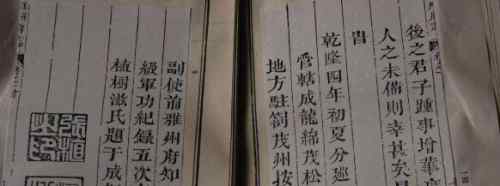 後之君子踵事增華
人之未備則幸甚矣
旹
乾隆四年初夏分巡
管轄成龍綿茂松
地方駐劄茂州按
副使前雅州府知
級軍功紀錄五次
植樹滋氏題于成